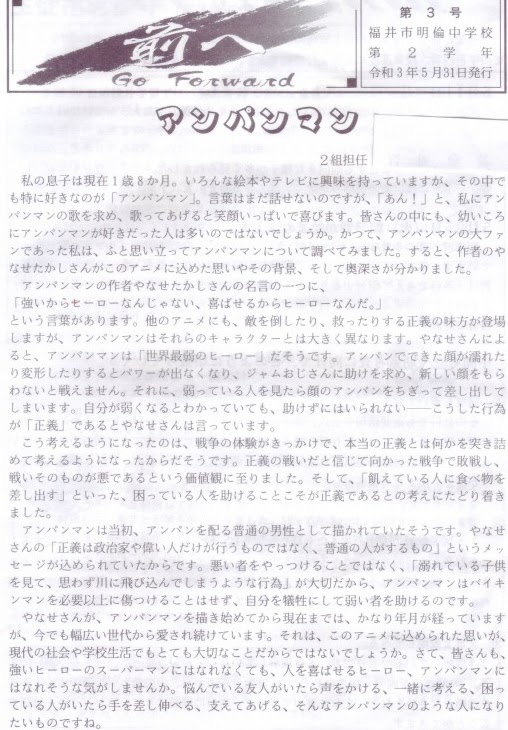 前へ
Go Forward
第3号
福井市明倫中学校
第2学年
令和3年5月31日発行
アンパンマン
２組担任
私の息子は現在１歳８か月。いろんな絵本やテレビに興味を持っていますが、その中で
も特に好きなのが「アンパンマン」。言葉はまだ話せないのですが、「あん！」と、私にアン
パンマンの歌を求め、歌ってあげると笑顔いっぱいで喜びます。皆さんの中にも、幼いころ
にアンパンマンが好きだった人は多いのではないでしょうか。かつて、アンパンマンの大ファ
ンであった私は、ふと思い立ってアンパンマンについて調べてみました。すると、作者のや
なせたかしさんがこのアニメに込めた思いやその背景、そして奥深さが分かりました。
アンパンマンの作者やなせたかしさんの名言の一つに、
「強いからヒーローなんじゃない、喜ばせるからヒーローなんだ。」
という言葉があります。他のアニメにも、敵を倒したり、救ったりする正義の味方が登場
しますが、アンパンマンはそれらのキャラクターとは大きく異なります。やなせさんによ
ると、アンパンマンは「世界最弱のヒーロー」だそうです。アンパンでできた顔が濡れた
り変形したりするとパワーが出なくなり、ジャムおじさんに助けを求め、新しい顔をもら
わないと戦えません。それに、弱っている人を見たら顔のアンパンをちぎって差し出して
しまいます。自分が弱くなるとわかっていても、助けずにはいられない――こうした行為
が「正義」であるとやなせさんは言っています。
こう考えるようになったのは、戦争の体験がきっかけで、本当の正義とは何かを突き詰
めて考えるようになったからだそうです。正義の戦いだと信じて向かった戦争で敗戦し、
戦いそのものが悪であるという価値観に至りました。そして、「飢えている人に食べ物を
差し出す」といった、困っている人を助けることこそが正義であるとの考えにたどり着き
ました。
アンパンマンは当初、アンパンを配る普通の男性として描かれていたそうです。やなせ
さんの「正義は政治家や偉い人だけが行うものではなく、普通の人がするもの」というメッ
セージが込められていたからです。悪い者をやっつけることではなく、「溺れている子供
を見て、思わず川に飛び込んでしまうような行為」が大切だから、アンパンマンはバイキ
ンマンを必要以上に傷つけることはせず、自分を犠牲にして弱い者を助けるのです。
やなせさんが、アンパンマンを描き始めてから現在までは、かなり年月が経っています
が、今でも幅広い世代から愛され続けています。それは、このアニメに込められた思いが、
現代の社会や学校生活でもとても大切なことだからではないでしょうか。さて、皆さんも、
強いヒーローのスーパーマンにはなれなくても、人を喜ばせるヒーロー、アンパンマンに
はなれそうな気がしませんか。悩んでいる友人がいたら声をかける、一緒に考える、困っ
ている人がいたら手を差し伸べる、支えてあげる、そんなアンパンマンのような人になり
たいものですね。